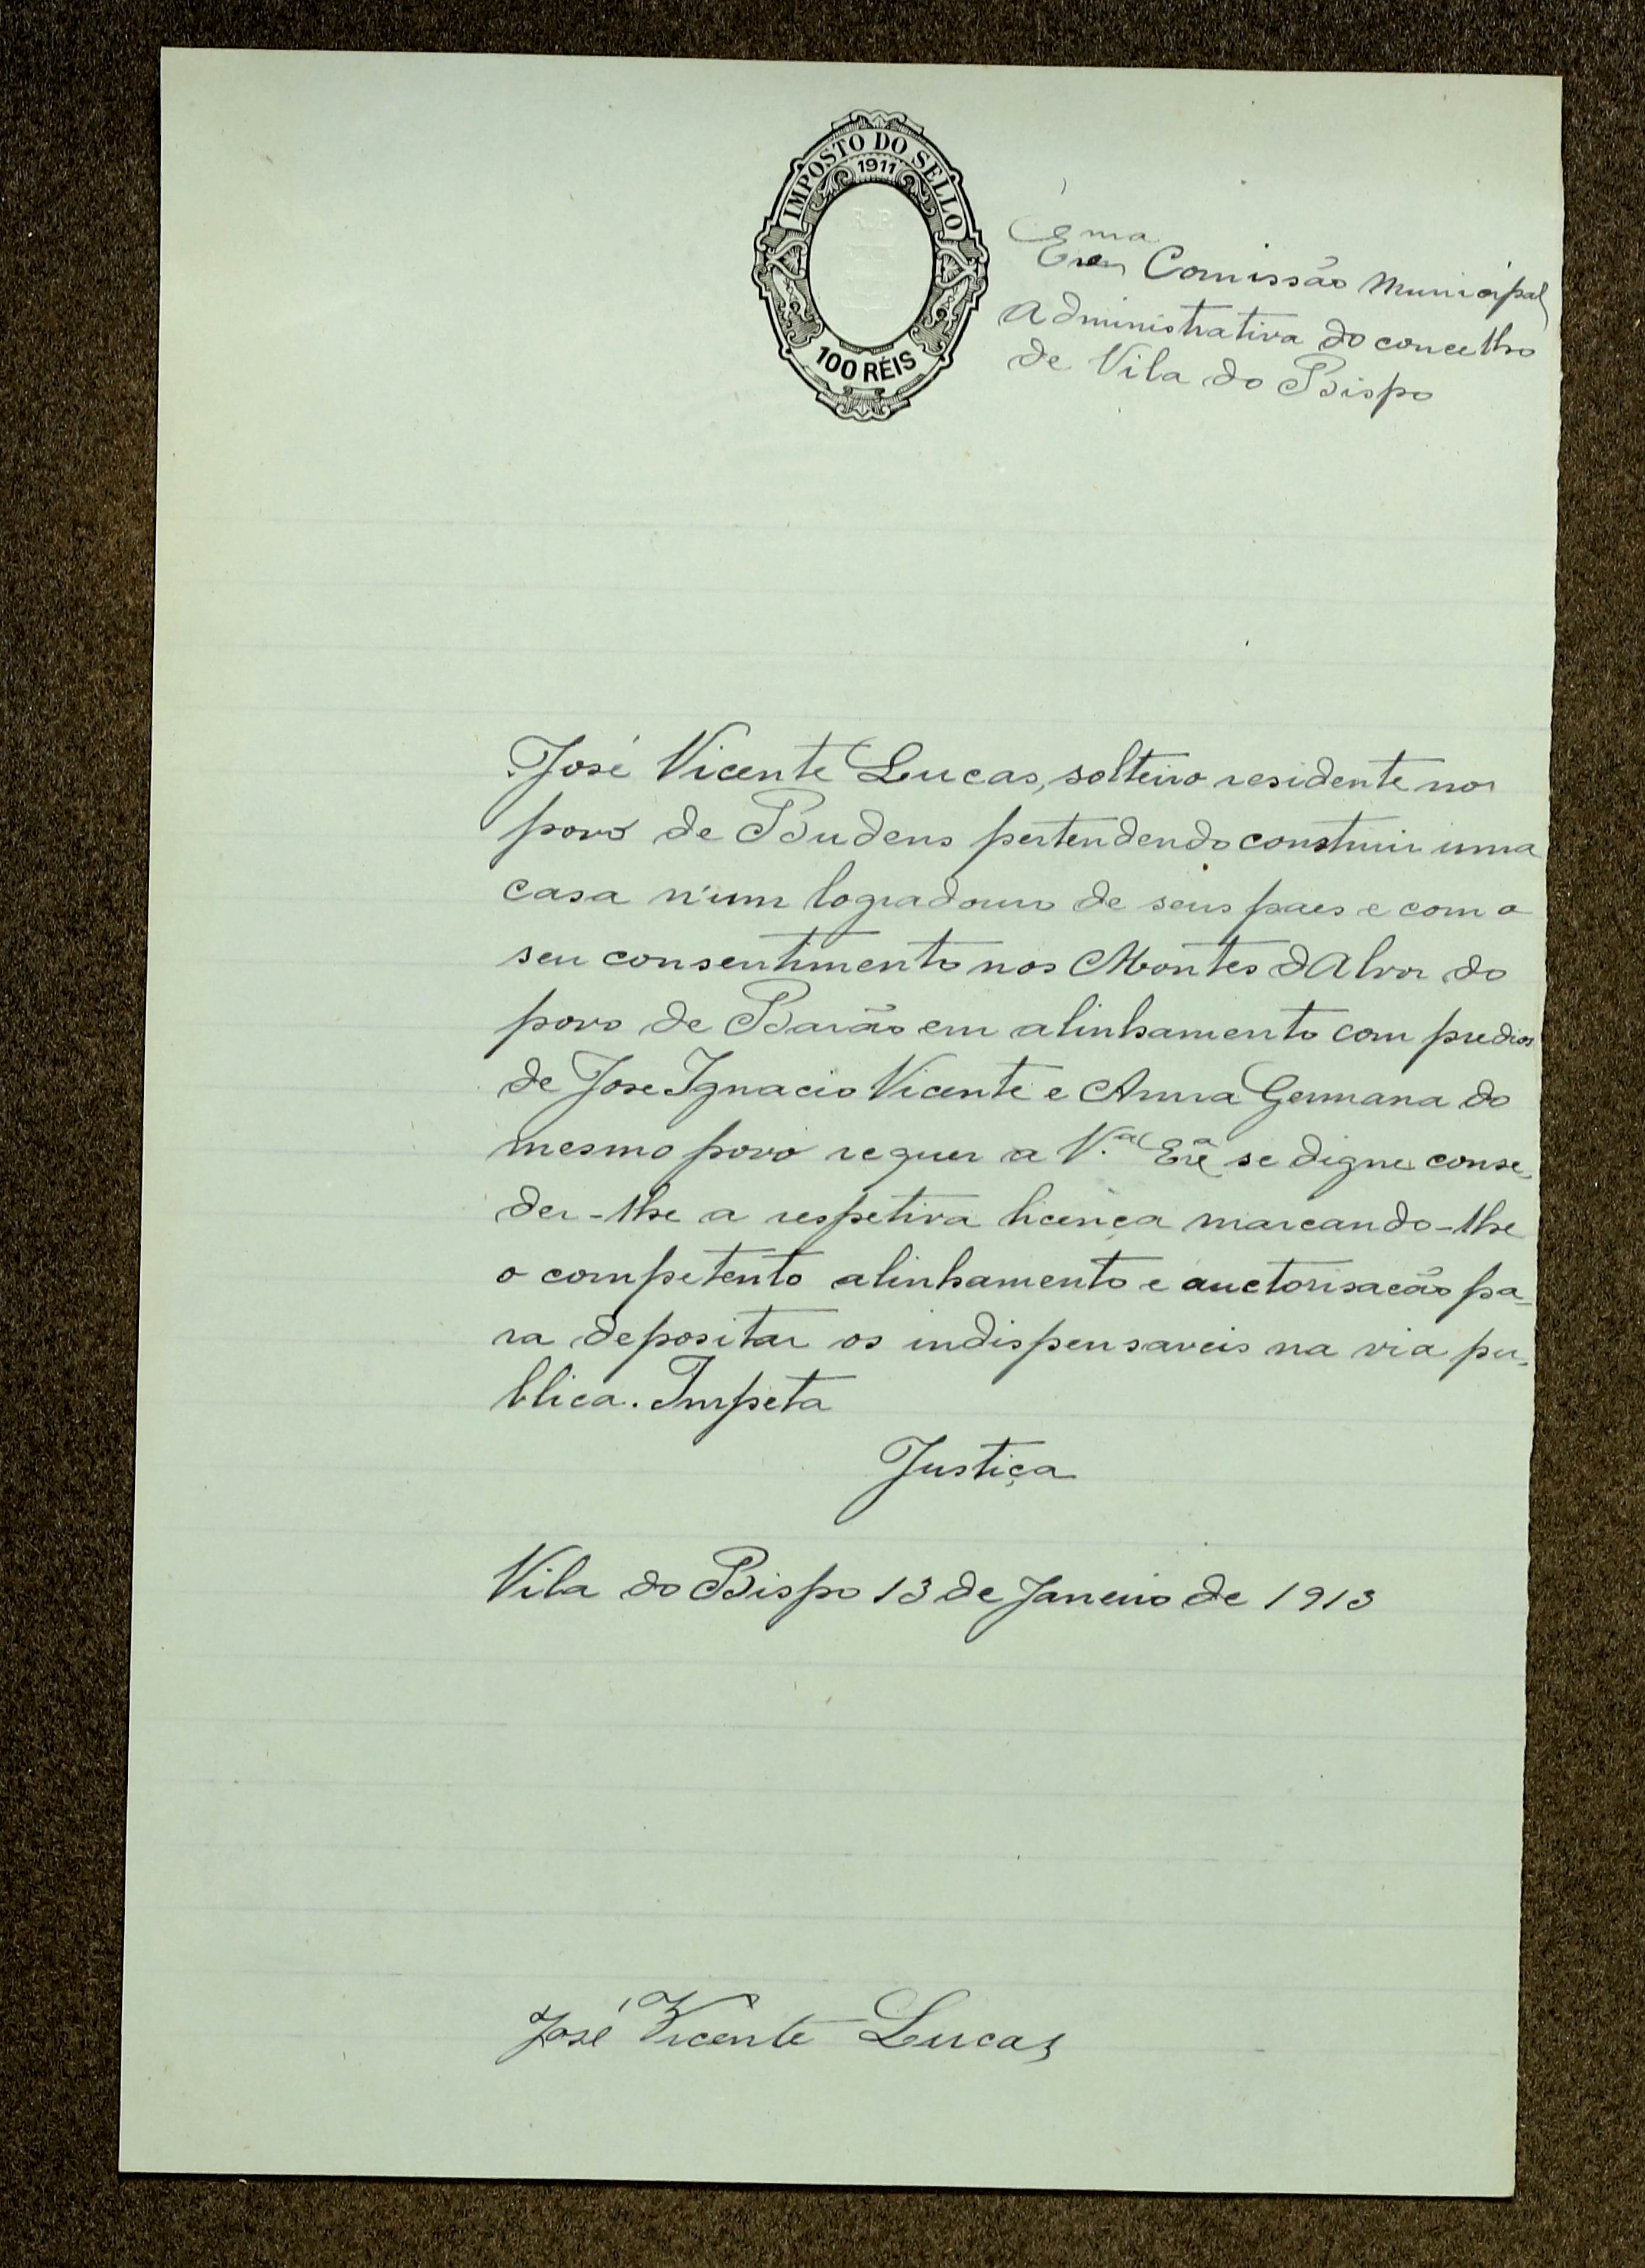 IMPOSTO DO SELLO
1911
R. P.
100 RÉIS
Comissão Municipal
Administrativa do concelho
de Vila do Bispo
José Vicente Lucas, solteiro residente no
povo de Budens pertendendo construir uma
casa n'um logradouro de seus paes e com o
seu consentimento nos Montes d'Alvor do
povo de Barão em alinhamento com predios
de Jose Ignacio Vicente e Anna Germana do
mesmo povo requer a V.ª Exª se digne conse-
der-lhe a respetiva licença marcando-lhe
o competento alinhamento e auctorisacão pa-
ra depositar os indispensaveis na via pu-
blica. Impeta
Justiça
Vila do Bispo 13 de Janeiro de 1913
José Vicente Lucas